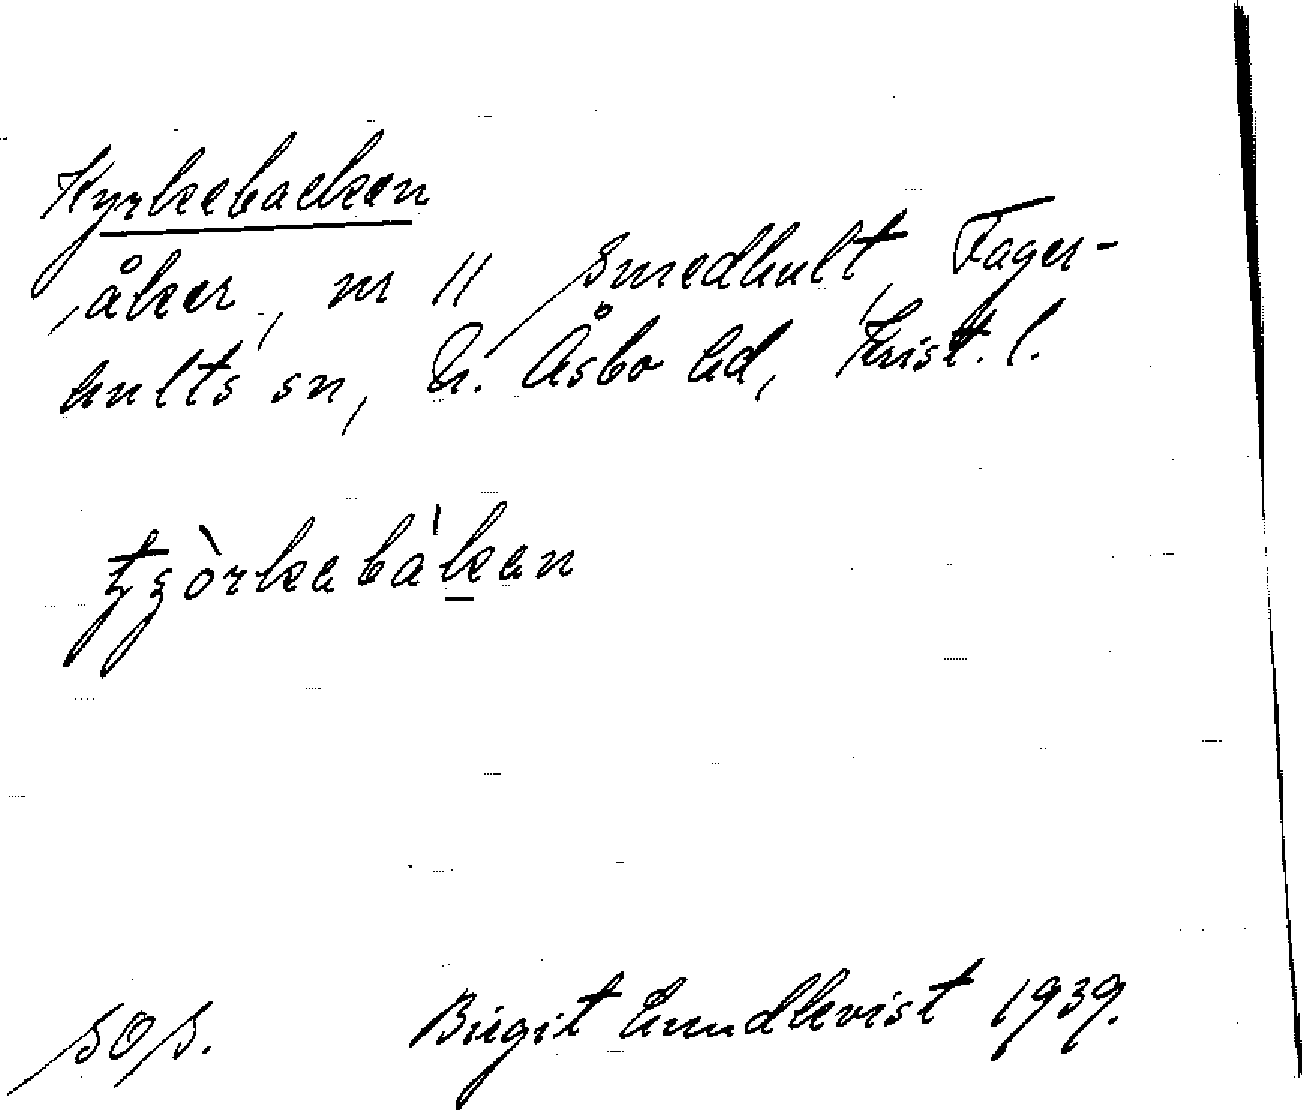 Kyrkebacken
åker, nr 11 Smedhult, Fager-
hults sn, N. Åsbo hd, Krist. l.
tʒòrkabàken
SOS. Birgit Lundkvist 1939.